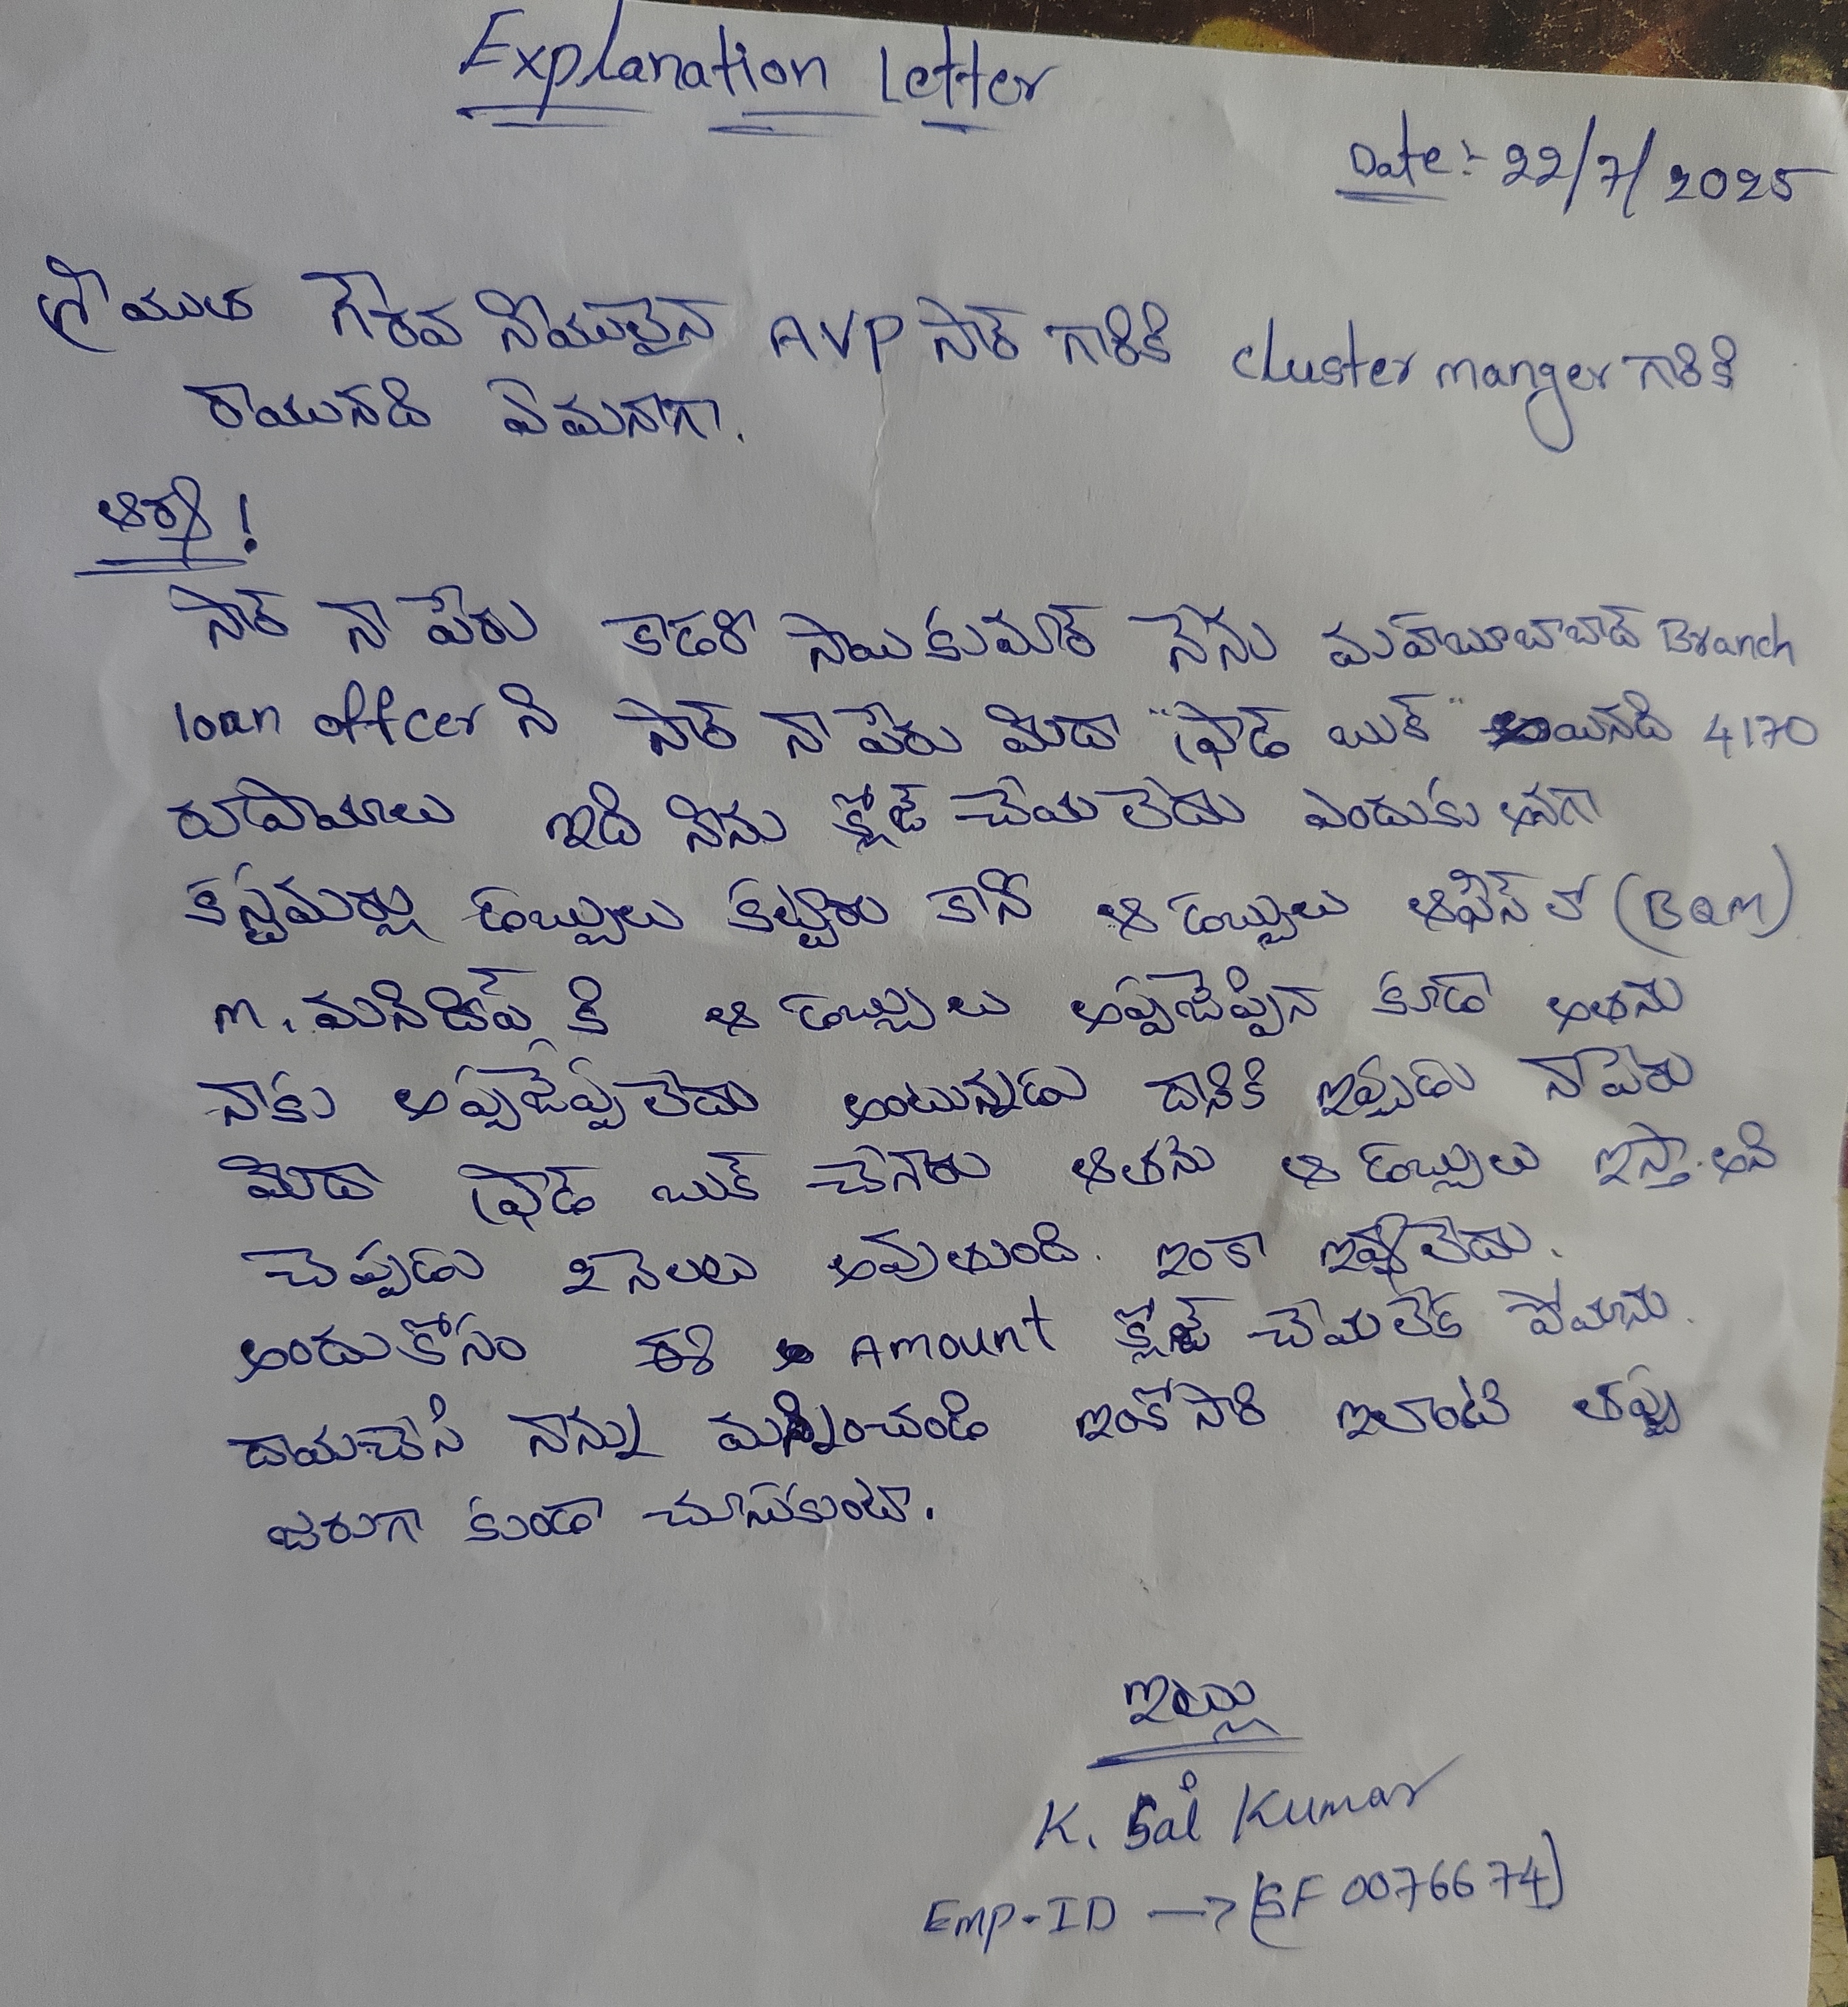 Explanation Letter
Date:- 22/7/2025
శ్రీయుత గౌరవ నీయులైన AVP సార్ గారికి cluster manger గారికి
రాయునది ఏమనగా.
ఆర్య!
సార్ నా పేరు కాడరి సాయికుమార్ నేను మహబూబాబాద్ Branch
loan offcer ని సార్ నా పేరు మీదా "ఫ్రాడ్ బుక్" అయినది 4170
రుపాయాలు ఇది నేను క్లోజ్ చేయలేదు ఎందుకు అనగా
కస్టమర్లు డబ్బులు కట్టారు కానీ ఆ డబ్బులు ఆఫీస్ లో (BQM)
M. మనిదీప్ కి ఆ డబ్బులు అప్పజెప్పిన కూడా అతను
నాకు అప్పజెప్పలేదు అంటున్నడు దానికి ఇప్పుడు నా పేరు
మీదా ఫ్రాడ్ బుక్ చేశారు ఆతను ఆ డబ్బులు ఇస్తా. అని
చెప్పడు 2 నెలలు అవుతుంది. ఇంకా ఇవ్వలేదు.
అందుకోసం ఈ Amount క్లోజ్ చేయలేక పోయాను.
దాయచేసి నాన్ను మన్నించండి ఇంకోసారి ఇలాంటి తప్పు
జరుగా కుండా చూసుకుంటా.
ఇట్లు
K. Sai Kumar
Emp-ID → (SF0076674)